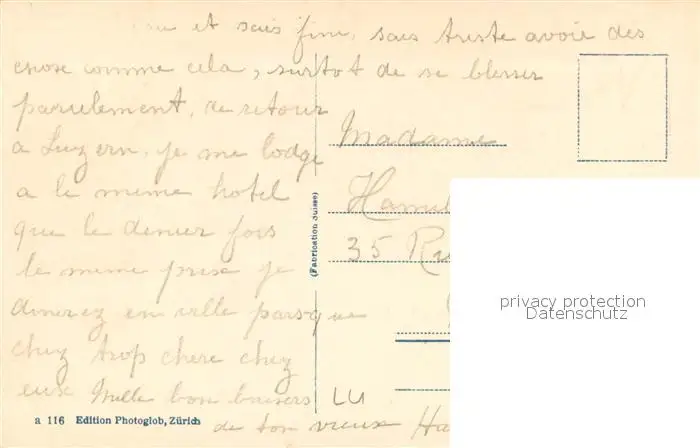 et sais fini, sais triste avoir des
chose comme cela, surtot de se blesser
parulement, de retour
a Luzern, je me lodge
a le meme hotel
que le denier fois
le meme prix je
dinerez en ville parsque
chez trop chere chez
eux Mille bon baisers
de ton vieux
Madame
35
(Fabrication Suisse)
LU
a 116 Edition Photoglob, Zürich
privacy protection
Datenschutz